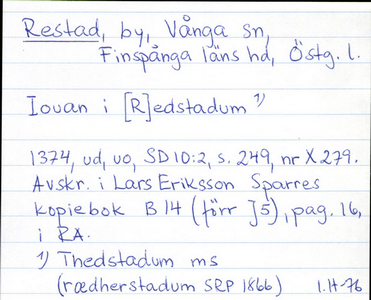 Restad, by, Vånga sn,
Finspånga läns hd, Östg. l.
Iouan i [R]edstadum 1)
1374, ud, uo, SD 10:2, s. 249, nr X 279.
Avskr. i Lars Eriksson Sparres
kopiebok B 14 (förr J 5), pag. 16,
i RA.
1) Thedstadum ms
(rædherstadum SRP 1866) 1.H-76